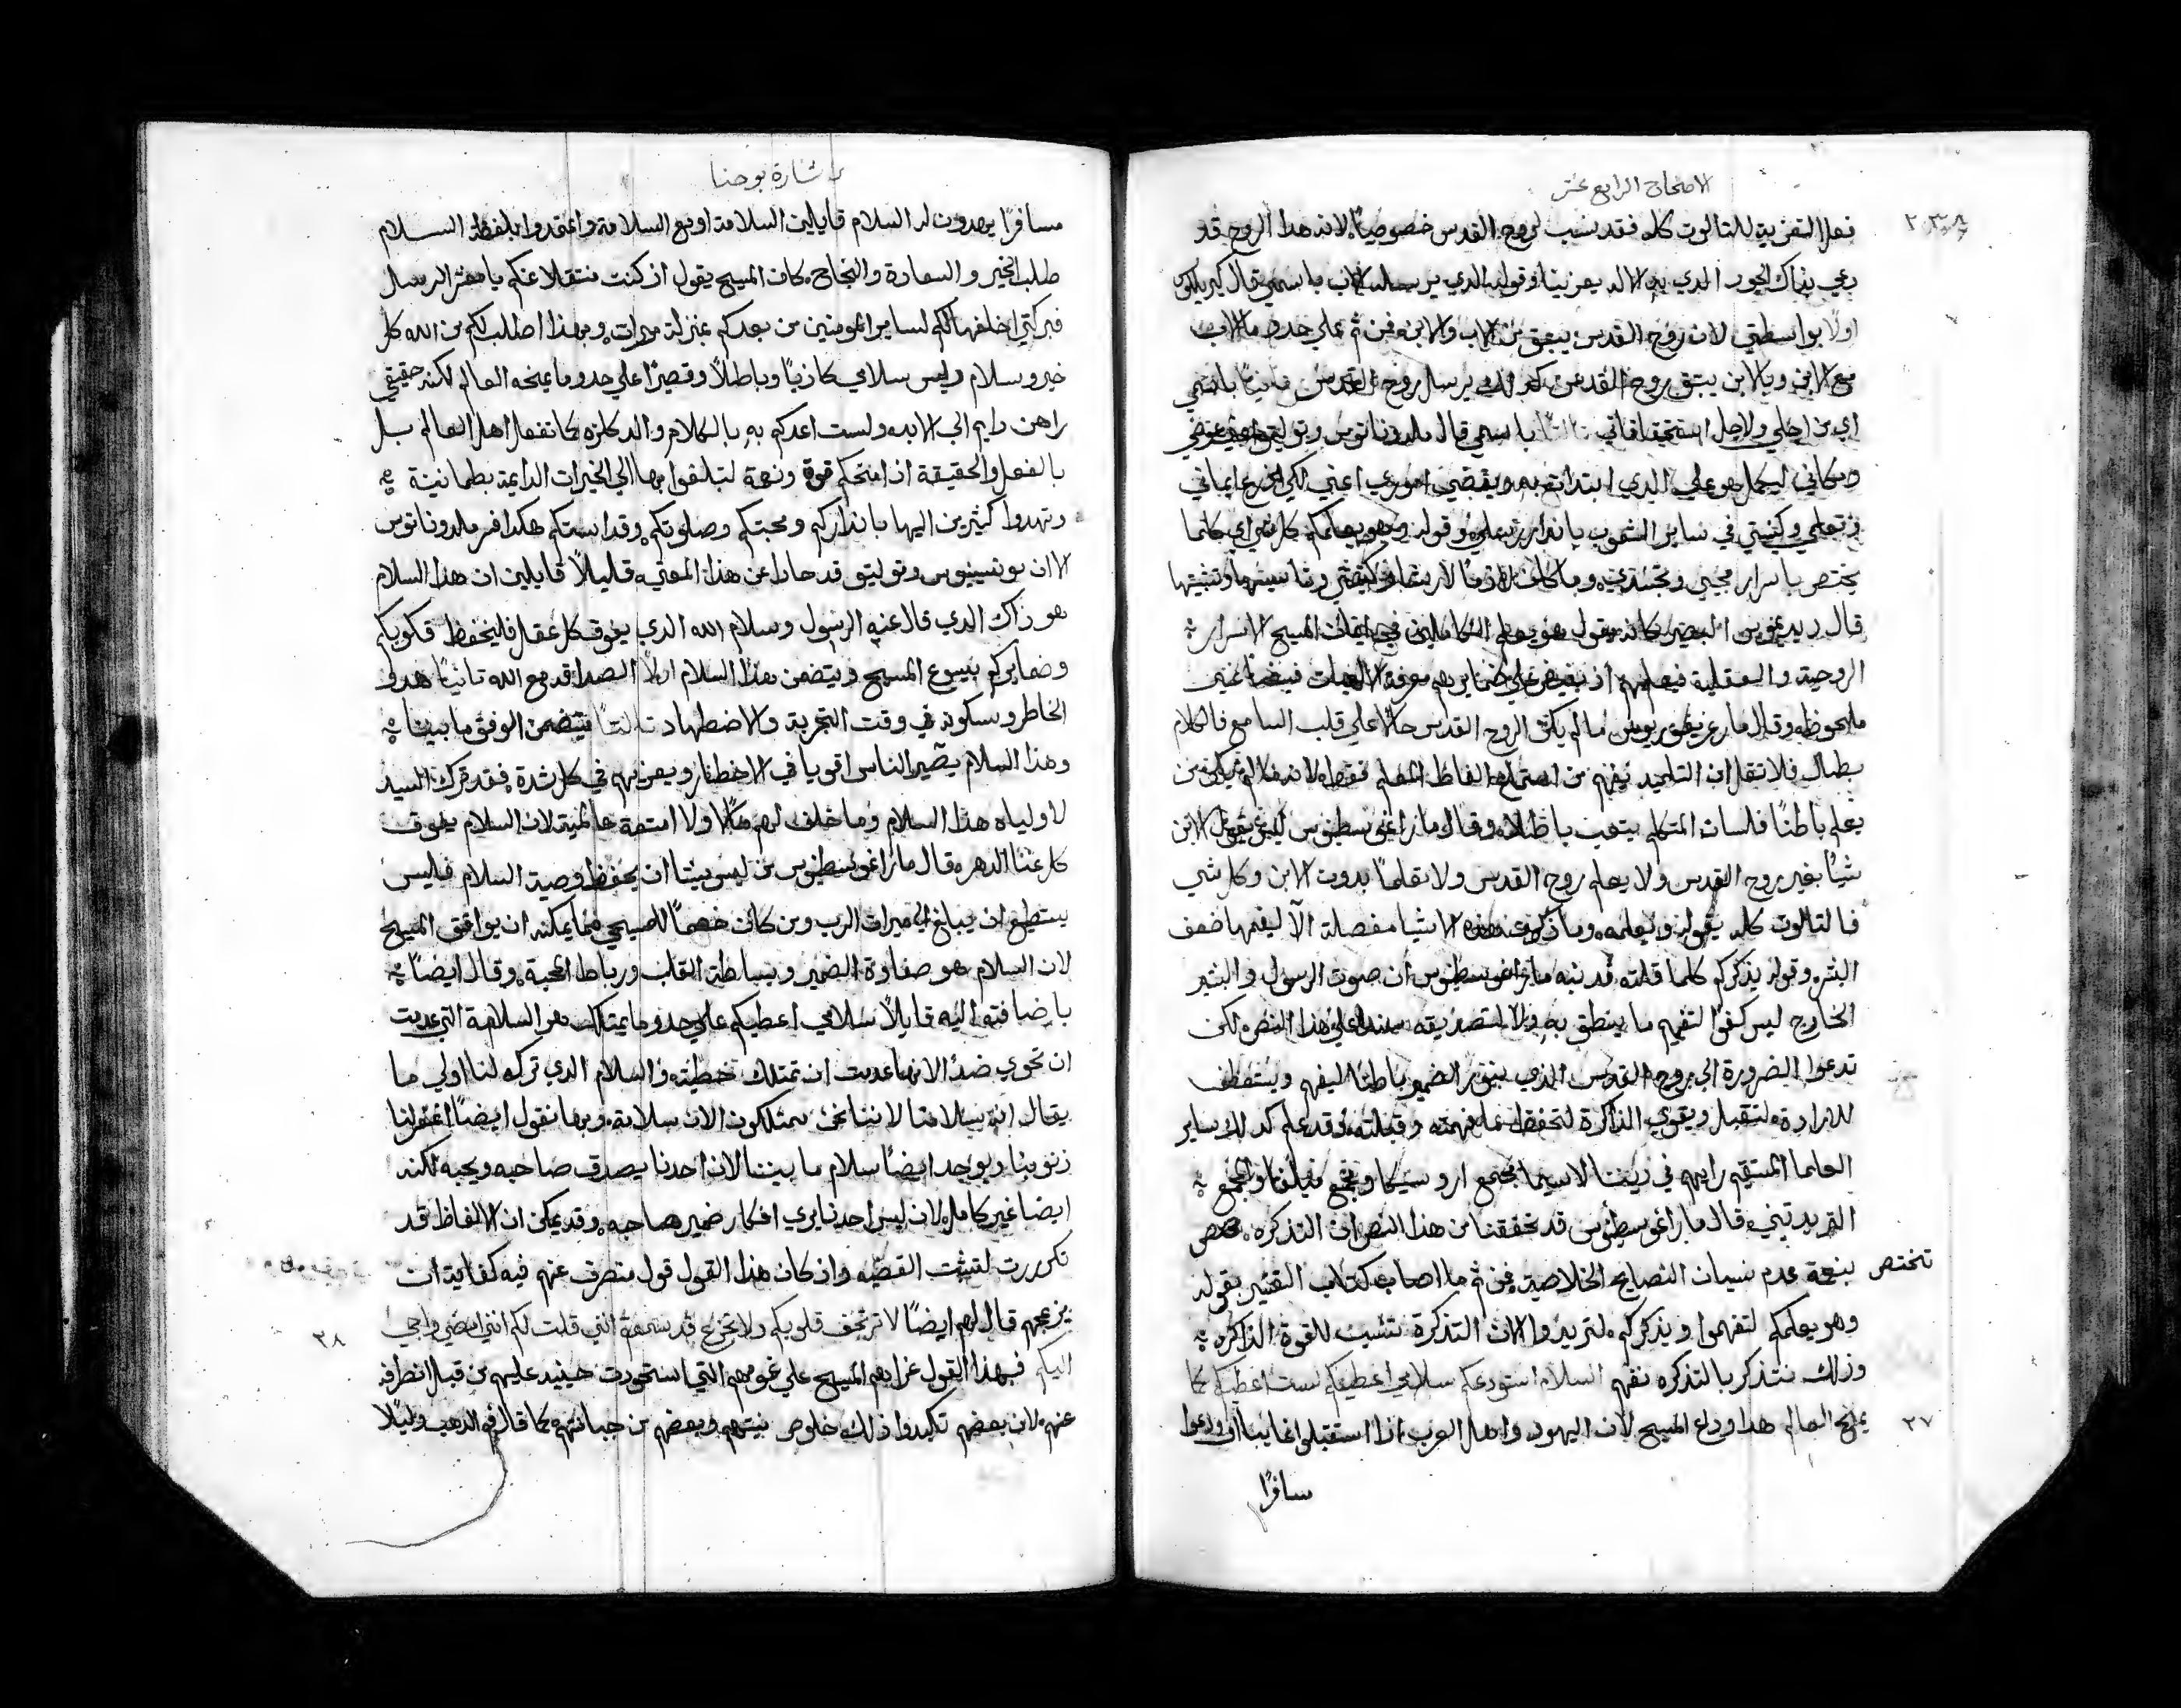 الاصحاح الرابع عشر
فعل التعزية للتالوت كله فقد نسب لروح القدس خصوصيًا لانه هذا الروح قد
دعي بذاك الجود الذي به الاله يعزينا وقوله الذي يرسله الاب باسمي قال كيرللوس
اولًا بواسطتي لان روح القدس ينبثق من الاب والابن فمن ثم علي حدو ما الاب
مع الابن وبالابن يبثق روح القدس يرسل روح القدس ثانيًا باسمي
اي من اجلي ولاجل استحقاقاتي ثالثًا باسمي قال ملدوناتوس وتوليتق عوضي
ومكاني ليكمل هو عملي الذي ابتدات به ويقضي اموري اعني لكي يزرع ايماني
وتعلمي وكنيستي في ساير الشعوب بانذار رسلي وقوله وهو يعلمكم كل شي اي كلما
يختص باسرار مجيي وتجسدي وما كان لازمًا لارشاد كنيستي وتاسيسها وتثبيتها
قال ديديموس البصير كانه يقول هو يعلم الكاملين في ايمان المسيح الاسرار
الروحية والعقلية فيعلمهم اذ يفيض علي ضمايرهم معرفة الالهيات فيضًا غير
ملحوظ وقال مار غريغوريوس ما لم يكن الروح القدس حالًا علي قلب السامع فالكلام
بطال فلا تقل ان التلميد يفهم من استماع الفاظ المعلم فقط لانه ما لم يكن من
يعلم باطنًا فلسان المتكلم يتعب باطلًا وقال مار اغوسطينوس ليس يقول الابن
شيًا بغير روح القدس ولا يعلم روح القدس ولا تعلمًا بدون الابن وكل شي
فالتالوت كله يقوله ويعلمه وما ذكر عنده هذه الاشيا مفصلة الا ليفهمها ضعف
البشر وقوله يذكركم كلما قلته قد نبه مار اغوسطينوس ان صوت الرسول والبشير
الخارج ليس كفوا لتفهيم ما ينطق به ولا لتصديقه سندا علي هذا النص لكن
تدعوا الضرورة الي روح القدس الذي ينور الضمير باطنًا ليفهم ويستعطف
للارادة لتقبل ويقوي الذاكرة لتحفظ ما فهمته وقبلته وقد علم كذلك ساير
العلما المستقيم رايهم في ديننا لاسيما مجتمع اروسيكا ومجمع ميلفا والمجمع
التريدتيني قال مار اغوسطينوس قد تحققنا من هذا النص ان التذكره
تختص بنعمة عدم نسيان النصايح الخلاصية فمن ثم ما اصاب كتاب القشير بقوله
وهو يعلمكم لتفهموا ويذكركم لتريدوا لان التذكرة تنسب للقوة الذاكره
وذلك نتذكر بالتذكره نفهم السلام استودعكم سلامي اعطيكم لست اعطيكم كما
٢٧
يمنح العالم هذا وداع المسيح لان اليهود واهل العرب اذا استقبلوا غايبًا او ودعوا
سافرًا
بشارة يوحنا
مسافرًا يهدون له السلام قايلين السلامة او مع السلامة واعتقدوا بلفظة السلام
طلب الخير والسعادة والنجاح كان المسيح يقول اذ كنت منتقلا عنكم يا معشر الرسل
فبركتي اخلفها لكم لساير المومنين من بعدكم بمنزلة ميرات وبهذا اطلب لكم من الله كل
خير وسلام وليس سلامي كاذبًا وباطلًا وقصيرًا علي حدو ما يمنحه العالم لكنه حقيقي
راهن دايم الي الابد ولست اعدكم به بالكلام والدكلزه كما تفعل اهل العالم بل
بالفعل والحقيقة اذ امنحكم قوة ونعمة لتبلغوا بها الي الخيرات الدايمة بطمانينة
وتهدوا كثيرين اليها بانداركم ومحبتكم وصلوتكم وقداستكم هكدا فسر ملدوناتوس
الا ان يونسينيوس وتوليتق قد حادا عن هذا المعني قليلًا قايلين ان هذا السلام
هو ذاك الدي قال عنه الرسول وسلام الله الدي يفوق كل عقل فليحفظ قلوبكم
وضمايركم بيسوع المسيح ويتضمن هذا السلام اولًا الصداقة مع الله تانيًا هدو
الخاطر وسكونه في وقت التجربة والاضطهاد تالتًا يتضمن الوفق ما بيننا
وهذا السلام يصير الناس اقويا في الاخطار ويعزيهم في كل شدة فقد ترك السيد
لاولياه هذا السلام وما خلف لهم مالًا ولا امتعة عالمية لان السلام يفوق
كل غنا الدهر قال مار اغوسطينوس من ليس يشا ان يحفظ وصية السلام فليس
يستطيع ان يبلغ الي ميرات الرب ومن كان خصمًا للمسيحي فما يمكنه ان يوافق المسيح
لان السلام هو صفاوة الضمير وبساطة القلب ورباط المحبة وقال ايضًا
باضافته اليه قايلًا سلامي اعطيكم علي حدو ما يمتلك هو السلامة التي عدمت
ان تحوي ضدًا لانها عدمت ان تمتلك خطية والسلام الدي تركه لنا اولي ما
يقال انه سلامنا لاننا نحن ممتلكون الان سلامة وبها نقول ايضًا اغفر لنا
ذنوبنا ويوجد ايضًا سلام ما بيننا لان احدنا يصدق صاحبه ويحبه لكنه
ايضا غير كامل لان ليس احدنا يري افكار ضمير صاحبه وقد يمكن ان الالفاظ قد
تكررت لتثبت القضيه واذ كان هذا القول قول منصرف عنهم فيه كفاية ان
يزعجهم قال لهم ايضًا لا ترتجف قلوبكم ولا تجزع قد سمعتم انني قلت لكم انني امضي واجي
٢٨
اليكم فبهذا القول عزاهم المسيح علي غومهم التي استحودت حينيد عليهم من قبل انطرافه
عنهم لان بعضهم تكبدوا ذلك خلوص نيتهم وبعضهم من جبانتهم كما قال فم الدهب وليلا